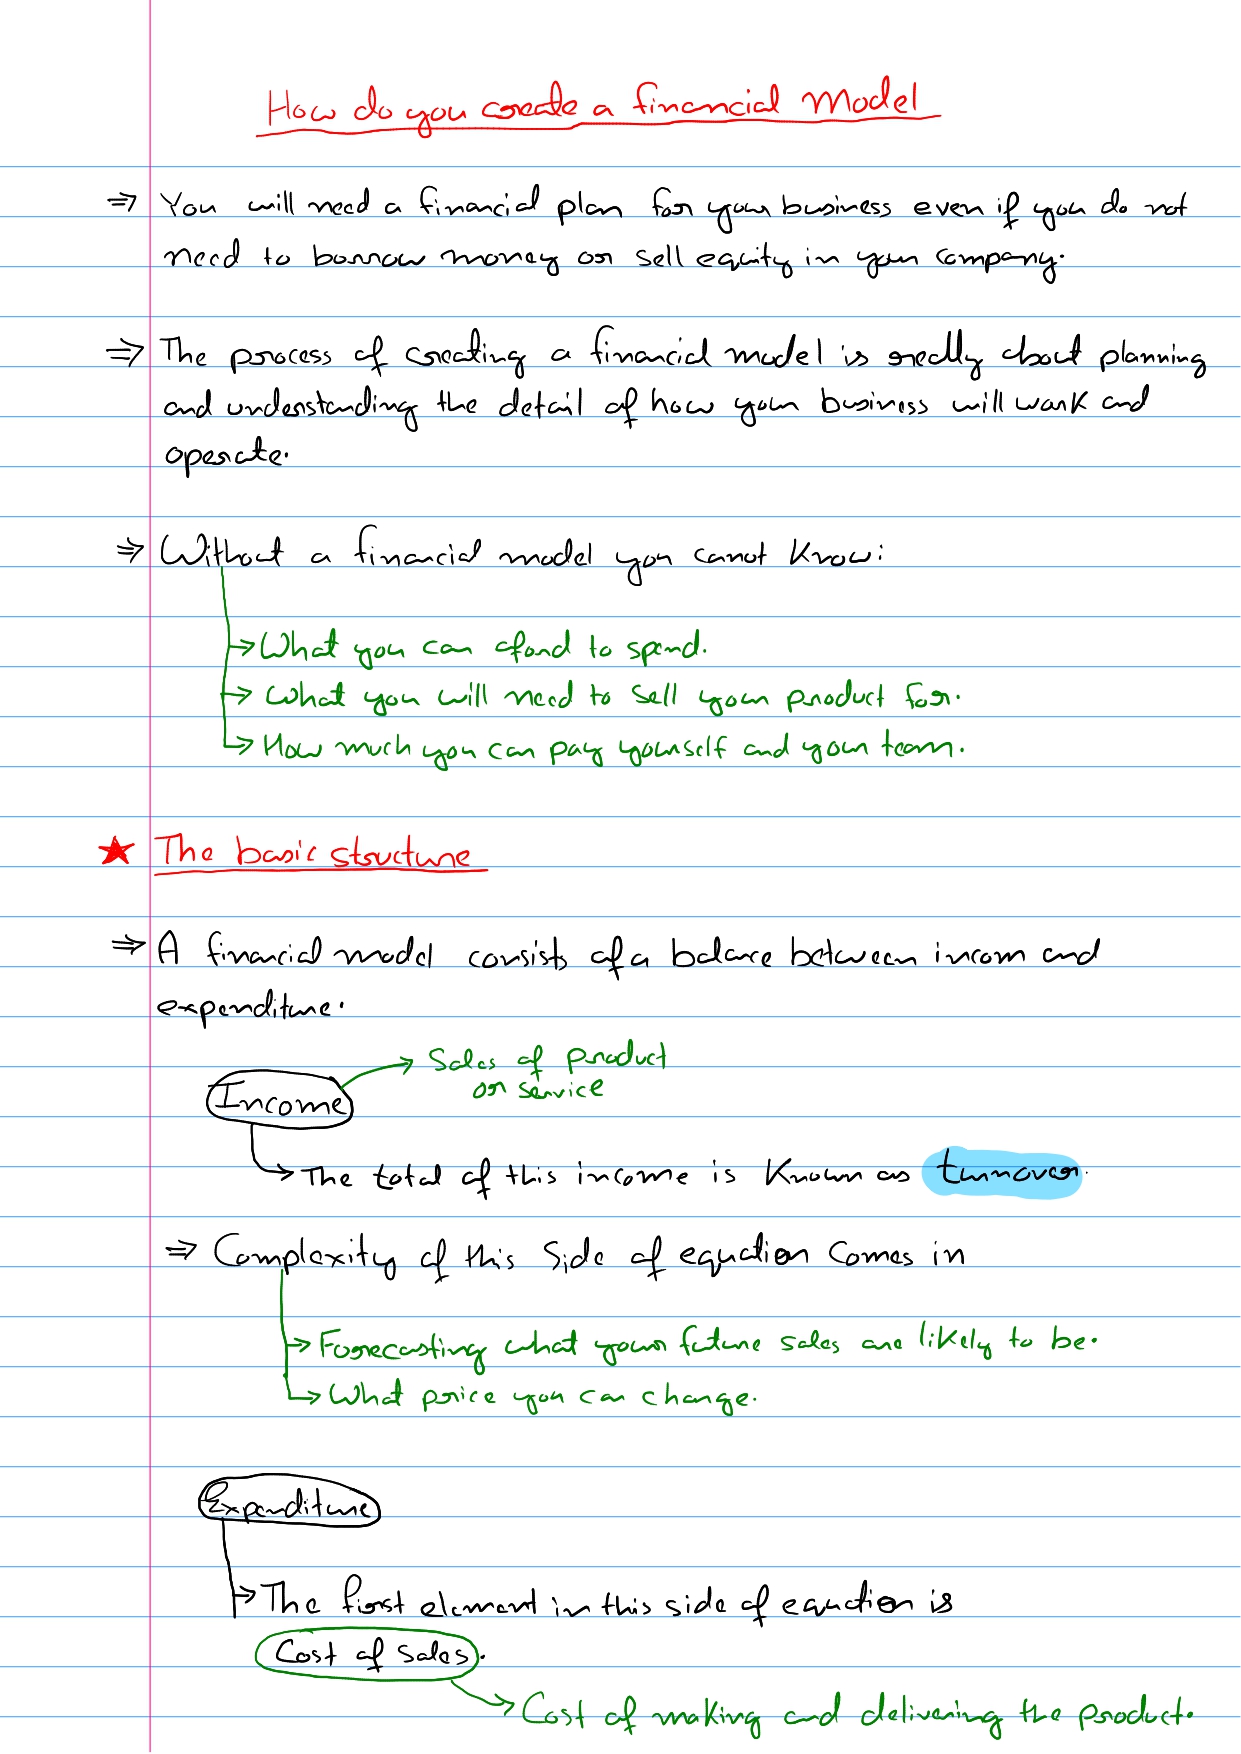 How do you create a financial Model
⇒ You will need a financial plan for your business even if you do not
need to borrow money or sell equity in your company.
⇒ The process of creating a financial model is really about planning
and understanding the detail of how your business will work and
operate.
⇒ Without a financial model you canot know:
→ What you can aford to spend.
→ What you will need to sell your product for.
→ How much you can pay yourself and your team.
★ The basic structure
⇒ A financial model consists of a balance between incom and
expenditure.
→ Sales of product
or service
Income
→ The total of this income is known as turnover.
⇒ Complexity of this side of equation comes in
→ Forecasting what your future sales are likely to be.
→ What price you can charge.
Expenditure
→ The first element in this side of equation is
Cost of sales.
→ Cost of making and delivering the product.